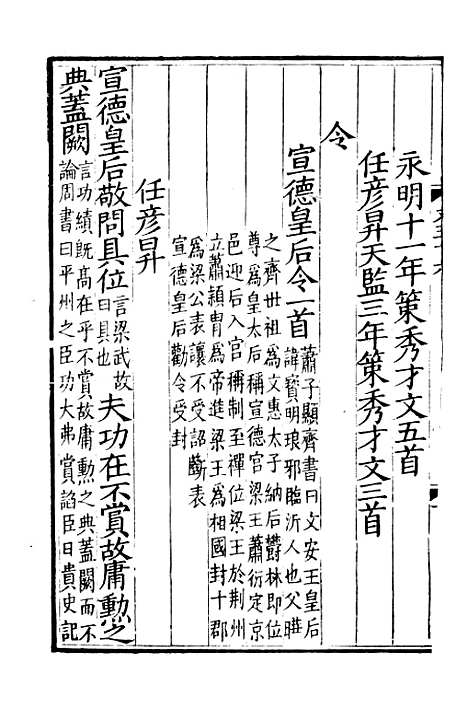 永明十一年策秀才文五首
任彦昇天監三年策秀才文三首
令
宣德皇后令一首
蕭子顯齊書曰文安王皇后
諱寶明琅邪臨沂人也父曄
之齊世祖爲文惠太子納后鬱林即位
尊爲皇太后稱宣德宮梁王蕭衍定京
邑迎后入宮稱制至禪位梁王於荆州
立蕭穎胄爲帝進梁王爲相國封十郡
爲梁公表讓不受詔斷表
宣德皇后勸令受封
任彦昇
宣德皇后敬問具位
言梁武故
曰具也
夫功在不賞故庸勲之
典蓋闕
言功績既高在乎不賞故庸勲之典蓋闕而不
論周書曰平州之臣功大弗賞諂臣日貴史記